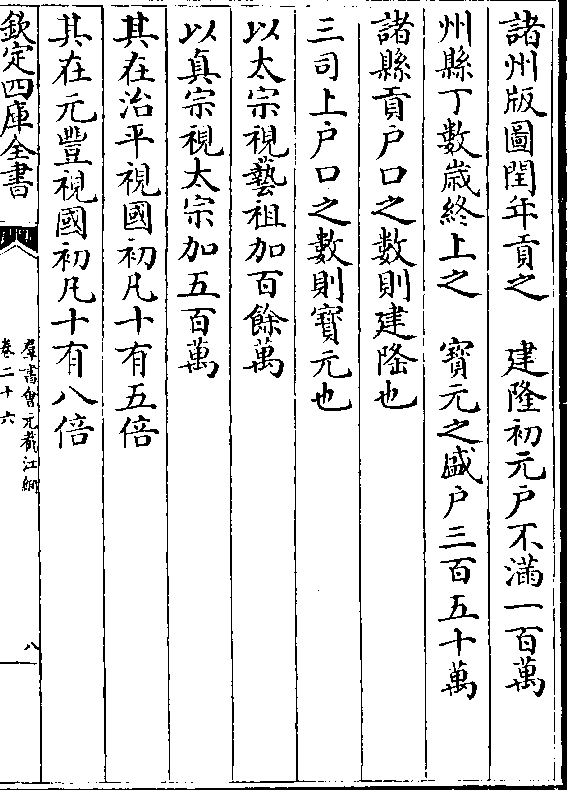 諸州版圖閏年貢之　建隆初元户不滿一百萬
州縣丁數嵗終上之　寳元之盛户三百五十萬
諸縣貢户口之數則建隆也
三司上户口之數則寳元也
以太宗視藝祖加百餘萬
以真宗視太宗加五百萬
其在治平視國初凡十有五倍
其在元豐視國初凡十有八倍
欽定四庫全書
羣書㑹元截江網
卷二十六
八